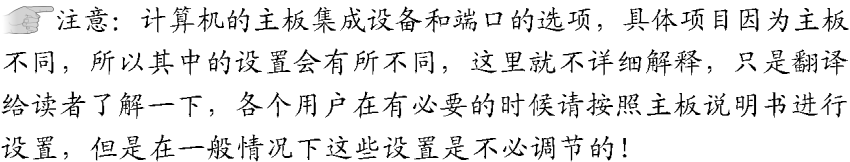 注意：计算机的主板集成设备和端口的选项，具体项目因为主板
不同，所以其中的设置会有所不同，这里就不详细解释，只是翻译
给读者了解一下，各个用户在有必要的时候请按照主板说明书进行
设置，但是在一般情况下这些设置是不必调节的！